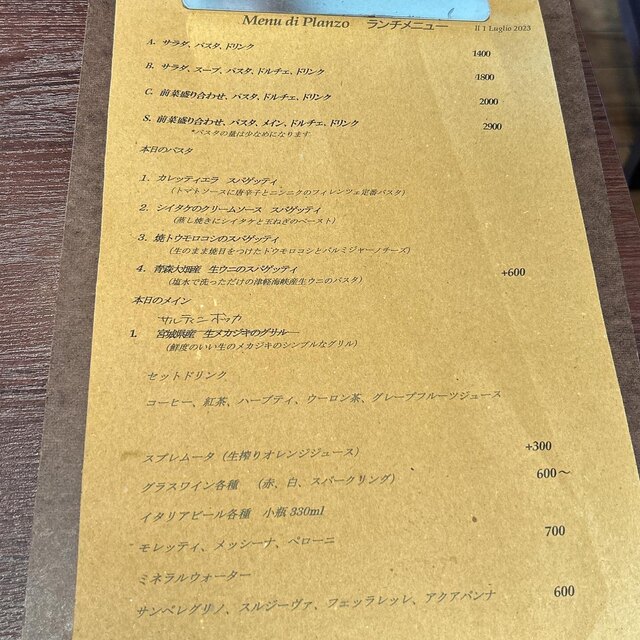 Menu di Pranzo ランチメニュー Il 1 Luglio 2023
A. サラダ、パスタ、ドリンク 1400
B. サラダ、スープ、パスタ、ドルチェ、ドリンク 1800
C. 前菜盛り合わせ、パスタ、ドルチェ、ドリンク 2000
S. 前菜盛り合わせ、パスタ、メイン、ドルチェ、ドリンク 2900
*パスタの量は少なめになります
本日のパスタ
1. カレッティエラ スパゲッティ
(トマトソースに唐辛子とニンニクのフィレンツェ定番パスタ)
2. シイタケのクリームソース スパゲッティ
(蒸し焼きにシイタケと玉ねぎのペースト)
3. 焼トウモロコシのスパゲッティ
(生のまま焼目をつけたトウモロコシとパルミジャーノチーズ)
4. 青森大畑産 生ウニのスパゲッティ +600
(塩水で洗っただけの津軽海峡産生ウニのパスタ)
本日のメイン
サルティンボッカ
1. 宮城県産 生メカジキのグリル
(鮮度のいい生のメカジキのシンプルなグリル)
セットドリンク
コーヒー、紅茶、ハーブティ、ウーロン茶、グレープフルーツジュース
スプレムータ(生搾りオレンジジュース) +300
グラスワイン各種 (赤、白、スパークリング) 600～
イタリアビール各種 小瓶330ml
モレッティ、メッシーナ、ペローニ 700
ミネラルウォーター
サンペレグリノ、スルジーヴァ、フェッラレッレ、アクアパンナ 600